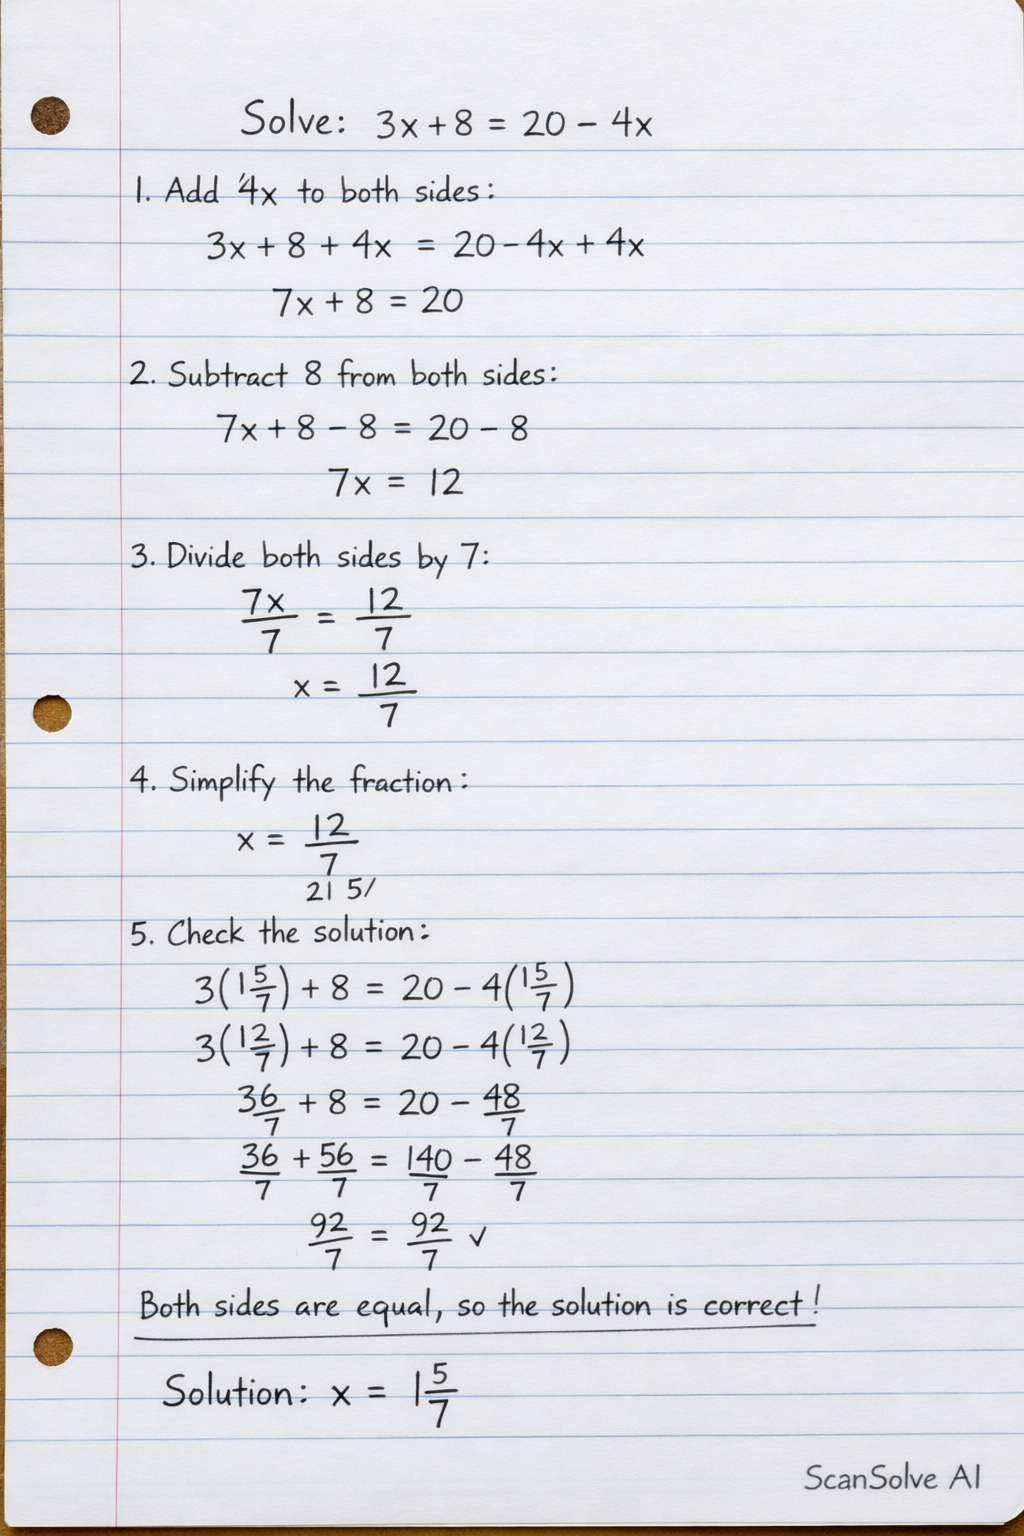 Solve: 3x + 8 = 20 - 4x
1. Add '4x to both sides:
3x + 8 + 4x = 20 - 4x + 4x
7x + 8 = 20
2. Subtract 8 from both sides:
7x + 8 - 8 = 20 - 8
7x = 12
3. Divide both sides by 7:
7x/7 = 12/7
x = 12/7
4. Simplify the fraction:
x = 12/7
21 5/
5. Check the solution:
3(1 5/7) + 8 = 20 - 4(1 5/7)
3(12/7) + 8 = 20 - 4(12/7)
36/7 + 8 = 20 - 48/7
36/7 + 56/7 = 140/7 - 48/7
92/7 = 92/7 ✓
Both sides are equal, so the solution is correct!
Solution: x = 1 5/7
ScanSolve AI